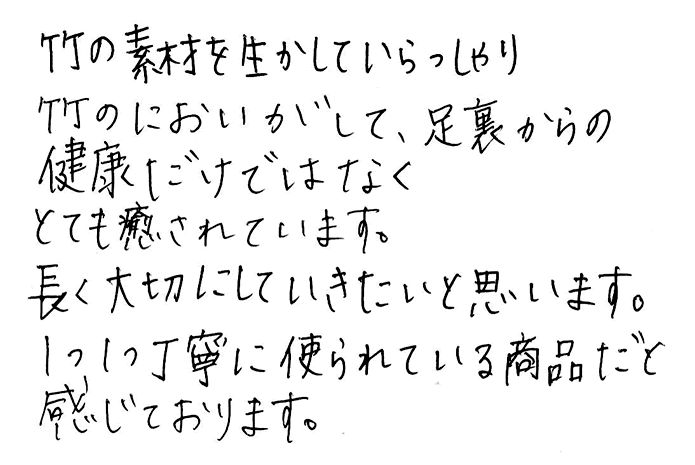 竹の素材を生かしていらっしゃり
竹のにおいがして、足裏からの
健康だけではなく
とても癒されています。
長く大切にしていきたいと思います。
1つ1つ丁寧に使られている商品だと
感じております。